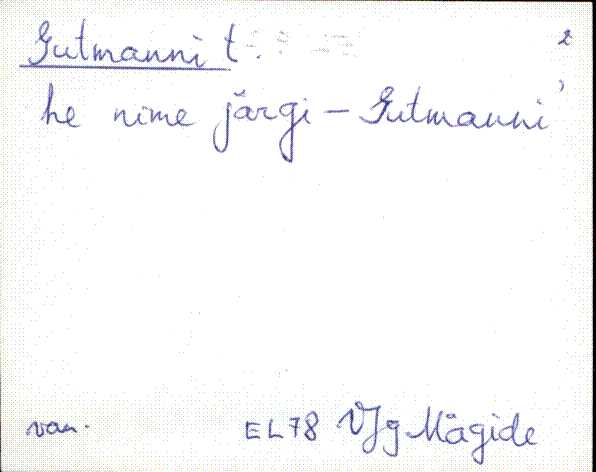 Gutmanni t. 2
he nime järgi – Gutmanni’
van. EL78 VJg Mägide